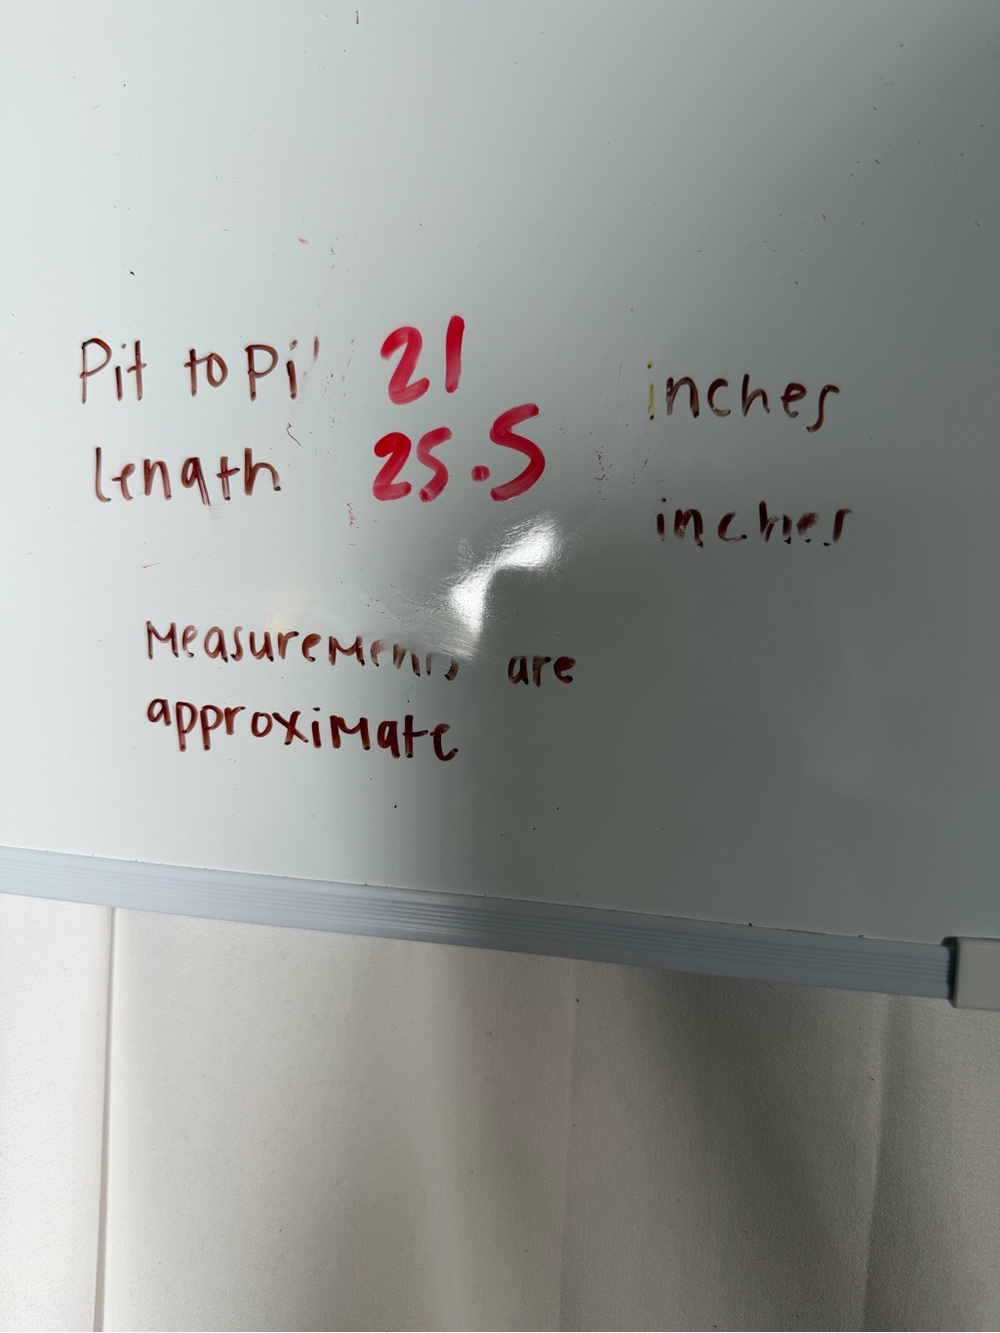 Pit to Pi 21 inches
length 25.5 inches
Measurements are
approximate